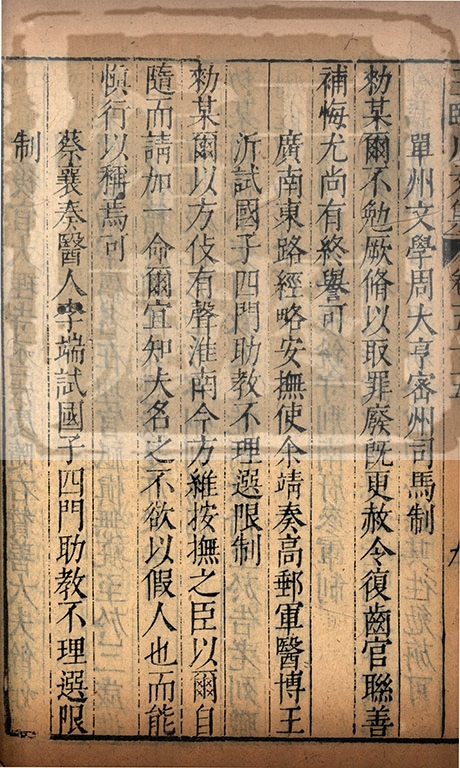 單州文學周大亨密州司馬制
勑某爾不勉厥脩以取罪廢旣更赦令復齒官聯善
補悔尤尚有終譽可
廣南東路經略安撫使余靖奏高郵軍醫博王
沂試國子四門助教不理選限制
勑某爾以方伎有聲淮南今方維按撫之臣以爾自
隨而請加一命爾宜知大名之不欲以假人也而能
愼行以稱焉可
蔡襄奏醫人李端試國子四門助教不理選限
制